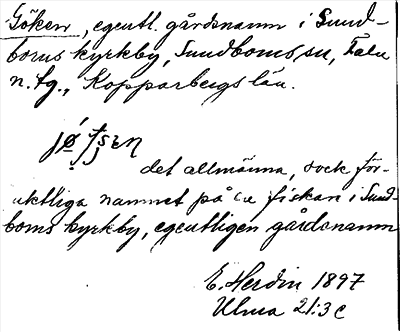 Göken, egentl. gårdsnamn i Sund-
borns kyrkby, Sundborns sn, Falu
n. tg., Kopparbergs län.
det allmänna, dock för-
aktliga namnet på en fiskare i Sund-
borns kyrkby, egentligen gårdsnamn
E. Herdin 1897
Ulma 21:3 c